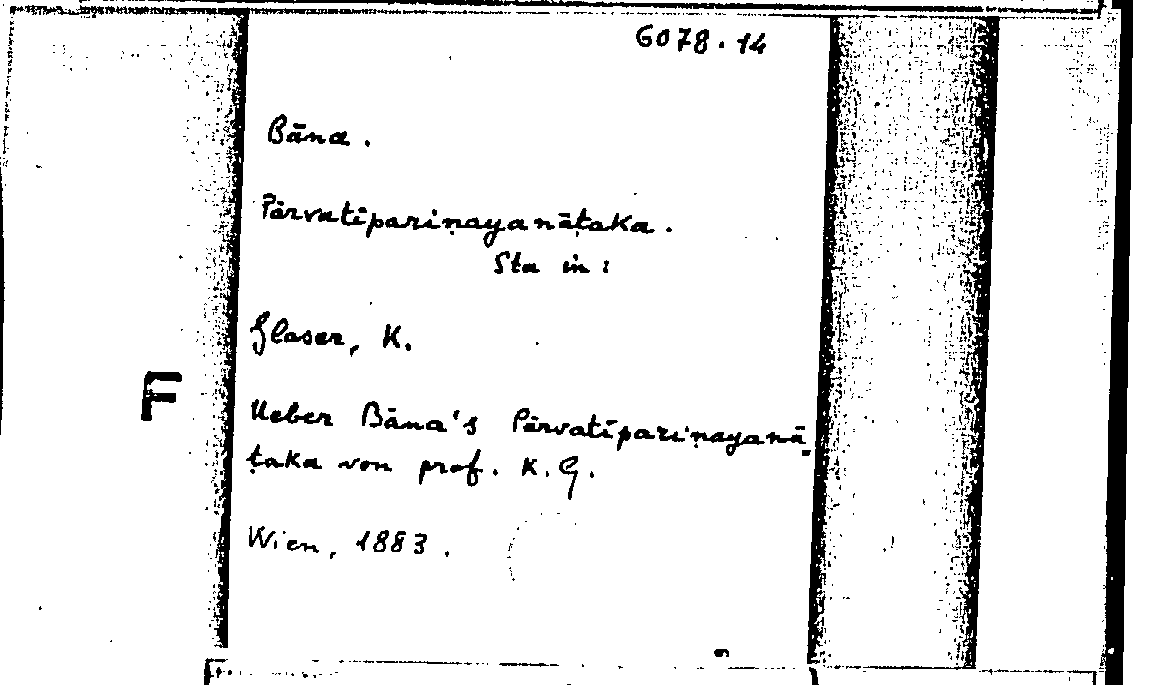 6078.14
Bāna.
Pārvatīpariṇayanāṭaka.
Sta in:
Glaser, K.
F
Ueber Bāna's Pārvatīpariṇayanā-
ṭaka von prof. K.G.
Wien, 1883.